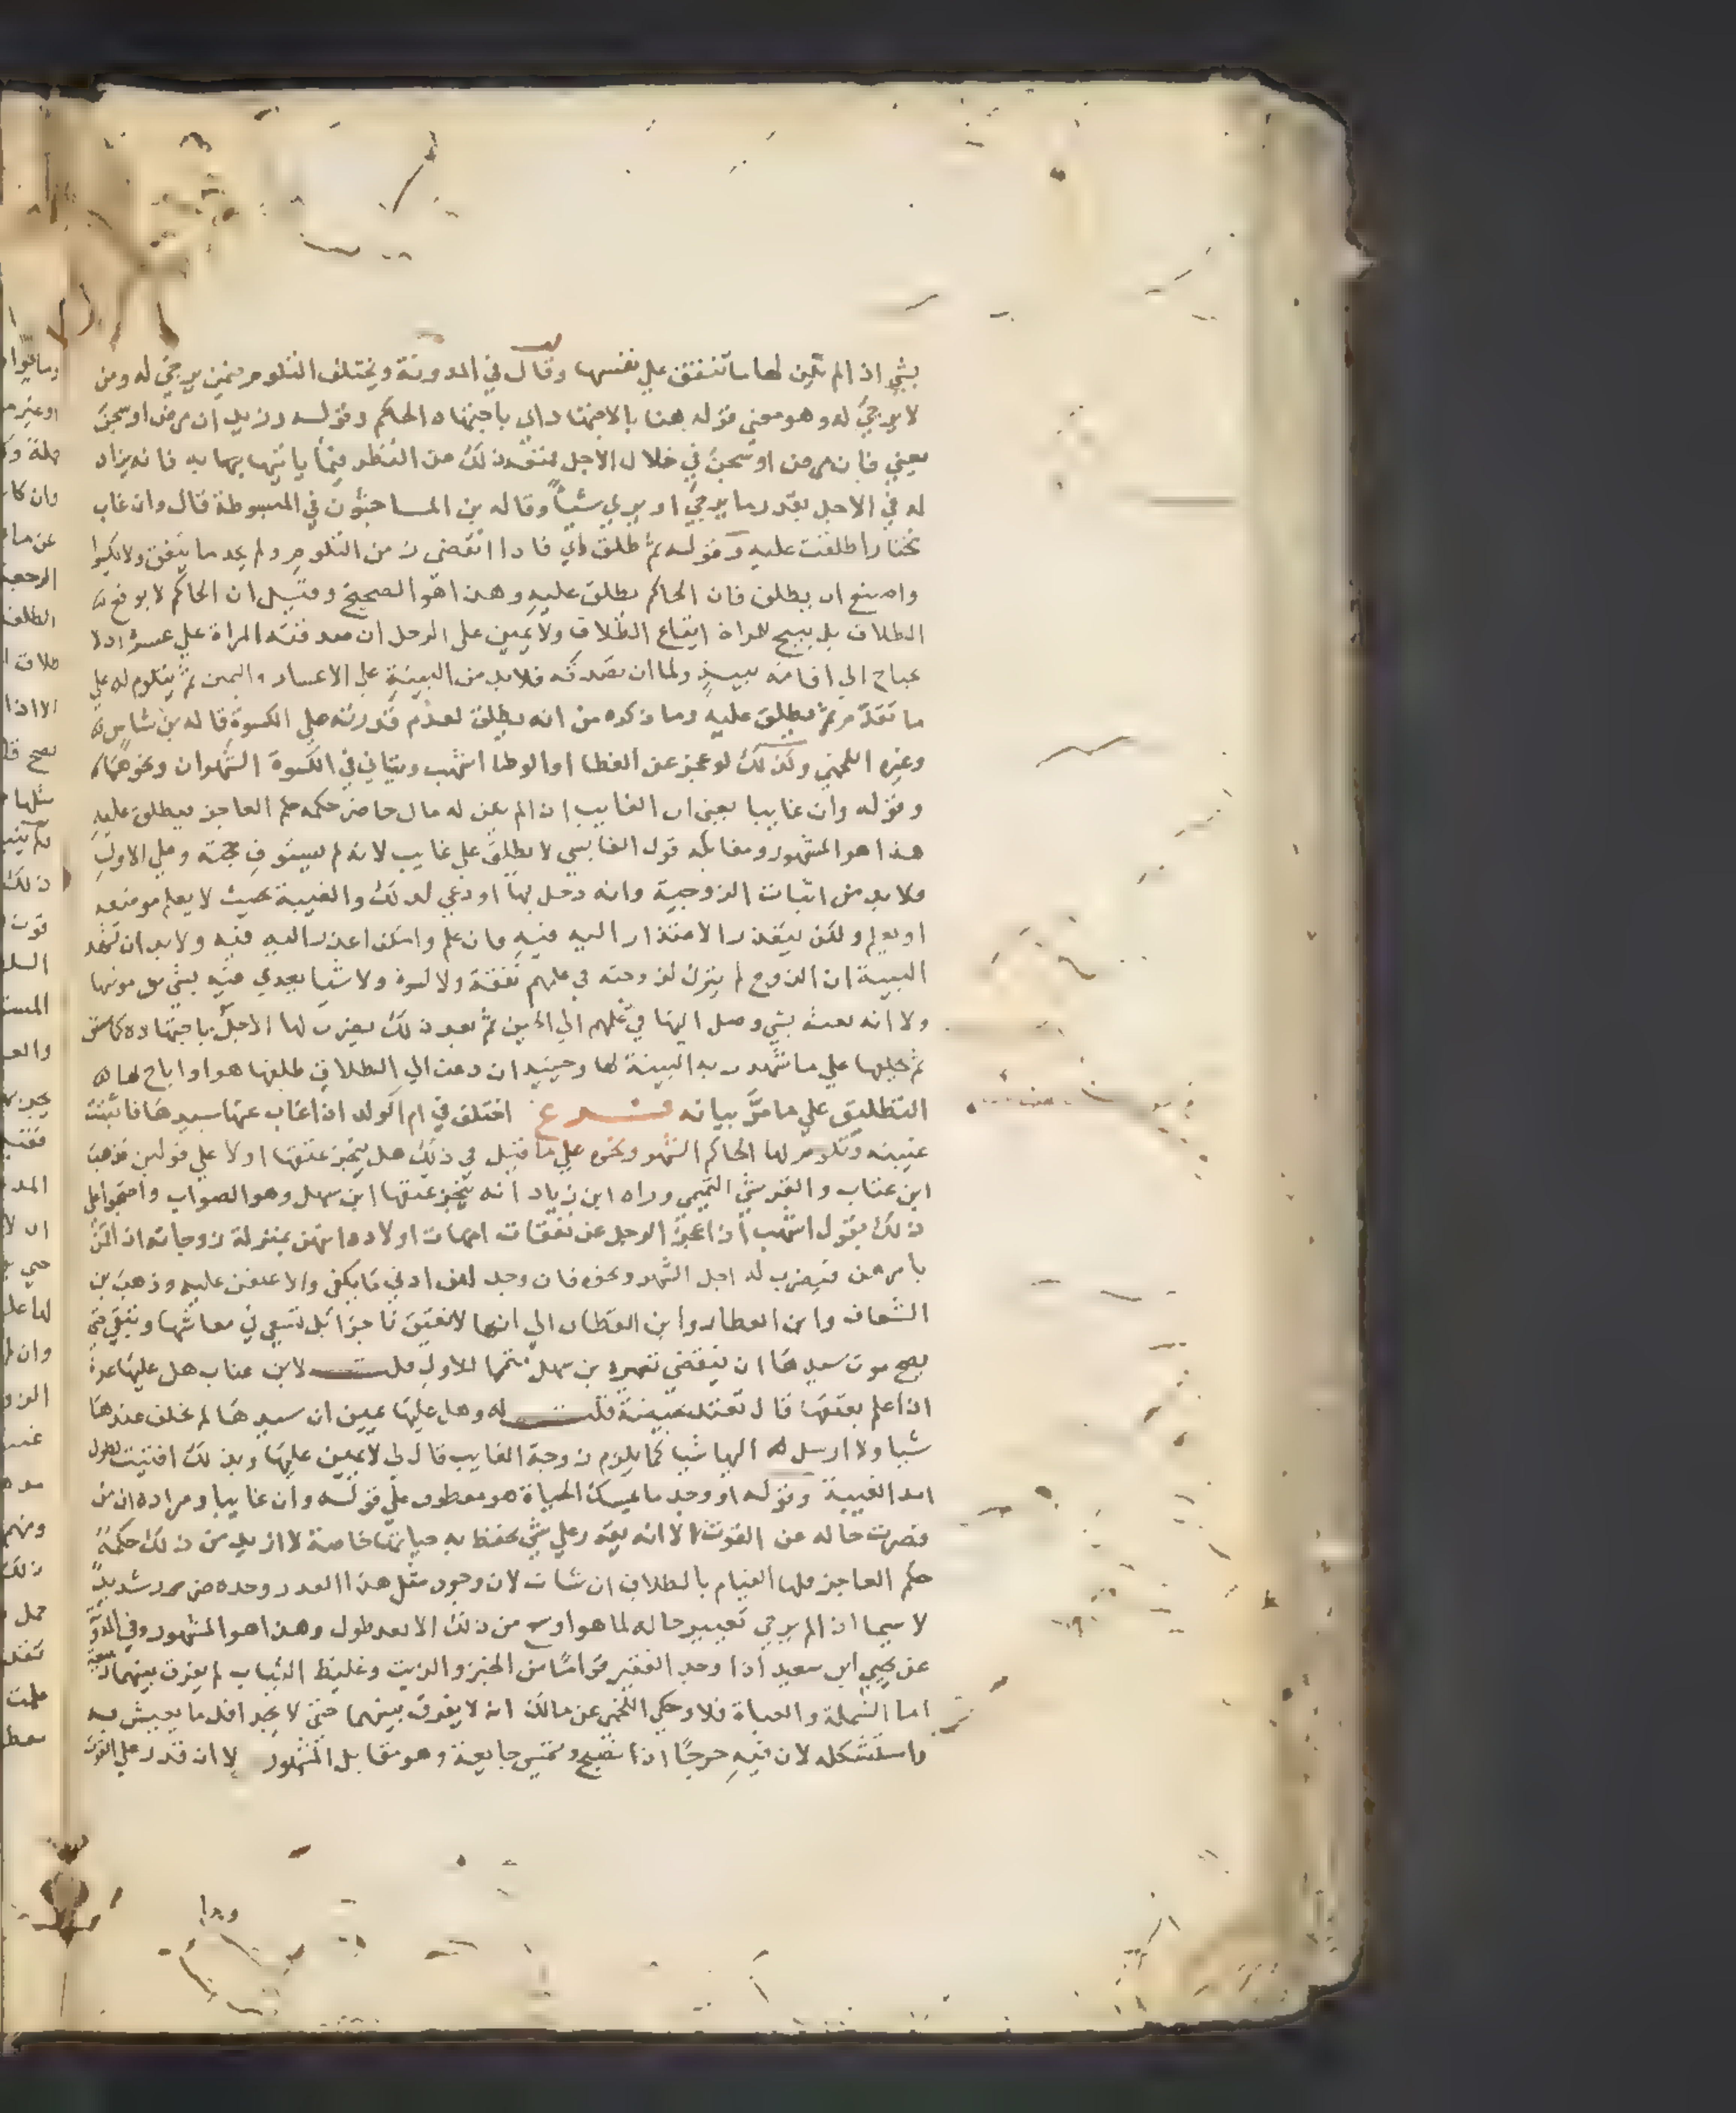 بشي اذا لم يكن لها ما تنفق علي نفسها وقال في المدونة ويختلف التلوم فيمن يرجي له ومن
لا يرجي له وهو معني قوله هنا بالاجتهاد اي باجتهاد الحاكم وقوله وزيد ان مرض او سجن
يعني فان مرض او سجن في خلال الاجل من النظر فيما ياتيها به فانه يزاد
له في الاجل بقدر ما يرجي او يري شيأ وقاله بن الماجشون في المبسوطة قال وان غاب
مختارا طلقت عليه وقوله ثم طلق اي فاذا انقضي زمن التلوم ولم يجد ما ينفق ولا يكسوا
وامتنع ان يطلق فان الحاكم يطلق عليه وهذا هو الصحيح وقيل ان الحاكم لا يوقع
الطلاق بل يبيح للمراة ايقاع الطلاق ولا يمين علي الرجل ان صدقته المراة علي عسره ولا
يحتاج الي اقامة بينة واما ان تصدقه فلا بد من البينة علي الاعسار واليمين ثم يتلوم له علي
ما تقدم ثم يطلق عليه وما ذكره من انه يطلق لعدم قدرته علي الكسوة قاله بن شاس
وغيره اللخمي وكذلك لو عجز عن الغطا او الوطا اشهب ويتاني في الكسوة الشهران ونحوهما
وقوله وان غايبا يعني ان الغايب اذا لم يكن له مال حاضر حكمه حكم العاجز يطلق عليه
هذا هو المشهور ومقابله قول القابسي لا يطلق علي غايب لانه لم يستوف حجته وعلي الاول
فلا بد من اثبات الزوجية وانه دخل بها او دعي لذلك والغيبة بحيث لا يعلم موضعه
او يعلم ولكن يتعذر الاعتذار اليه فيه فان علم وامكن اعذر اليه فيه ولا بد ان تشهد
البينة ان الزوج لم يترك لزوجته في علمهم نفقة ولا كسوة ولا شيا يعدي فيه بشي من مونتها
ولا انه بعث بشي وصل اليها في علمهم الي الان ثم بعد ذلك يضرب لها الاجل باجتهاده كما سبق
ثم يحلفها علي ما شهدت به البينة لها وحينيذ ان دعت الي الطلاق طلقها هو او اباح لها
التطليق علي ما مر بيانه فرع اختلف في ام الولد اذا غاب عنها سيدها فاثبتت
غيبته وتلوم لها الحاكم الشهر ونحوه علي ما قيل في ذلك هل ينجز عتقها اولا علي قولين فذهب
ابن عتاب والقرشي التميمي وراه ابن زياد انه ينجز عتقها ابن سهل وهو الصواب واحتجوا علي
ذلك بقول اشهب اذا عجز الرجل عن نفقات امهات اولاده انهن بمنزلة زوجاته اذا لم
يامرهن فيضرب له اجل الشهر ونحوه فان وجد لهن ادني ما يكفي والا عتقن عليه وذهب بن
الشقاق وابن العطار وابن القطان الي انها لا تعتق ناجزا بل تسعي في معاشها وتبقي حتي
يصح موت سيدها او ينقضي تعميره بن سهل للاول قلت لابن عتاب هل عليها عدة
اذا علم بعتقها قال تعتد بحيضة قلت له وهل عليها يمين ان سيدها لم يخلف عندها
شيا ولا ارسل اليها شيا كما يلزم زوجة الغايب قال لي لا يمين عليها وبذلك افتيت لطول
امد الغيبة وقوله او وجد ما يمسك الحياة هو معطوف علي قوله وان غايبا ومراده ان من
قصرت حاله عن القوت الا انه يقدر علي شي يحفظ به حياتها خاصة لا ازيد من ذلك حكمه
حكم العاجز فلها القيام بالطلاق ان شات لان وجود مثل هذا القدر وحده ضرر شديد
لا سيما اذا لم يرجي تغيير حاله لما هو اوسع من ذلك الا بعد طول وهذا هو المشهور وفي المدونة
عن يحيي ابن سعيد اذا وجد الفقير قواما من الخبز والزيت وغليظ الثياب لم يفرق بينهما
اما الشملة والعباة فلا وحكي اللخمي عن مالك انه لا يفرق بينهما حتي لا يجد اقل ما يعيش به
واستشكله لان فيه حرجا اذا تصبح وتمسي جايعة وهو مقابل المشهور لا ان قدر علي القوت